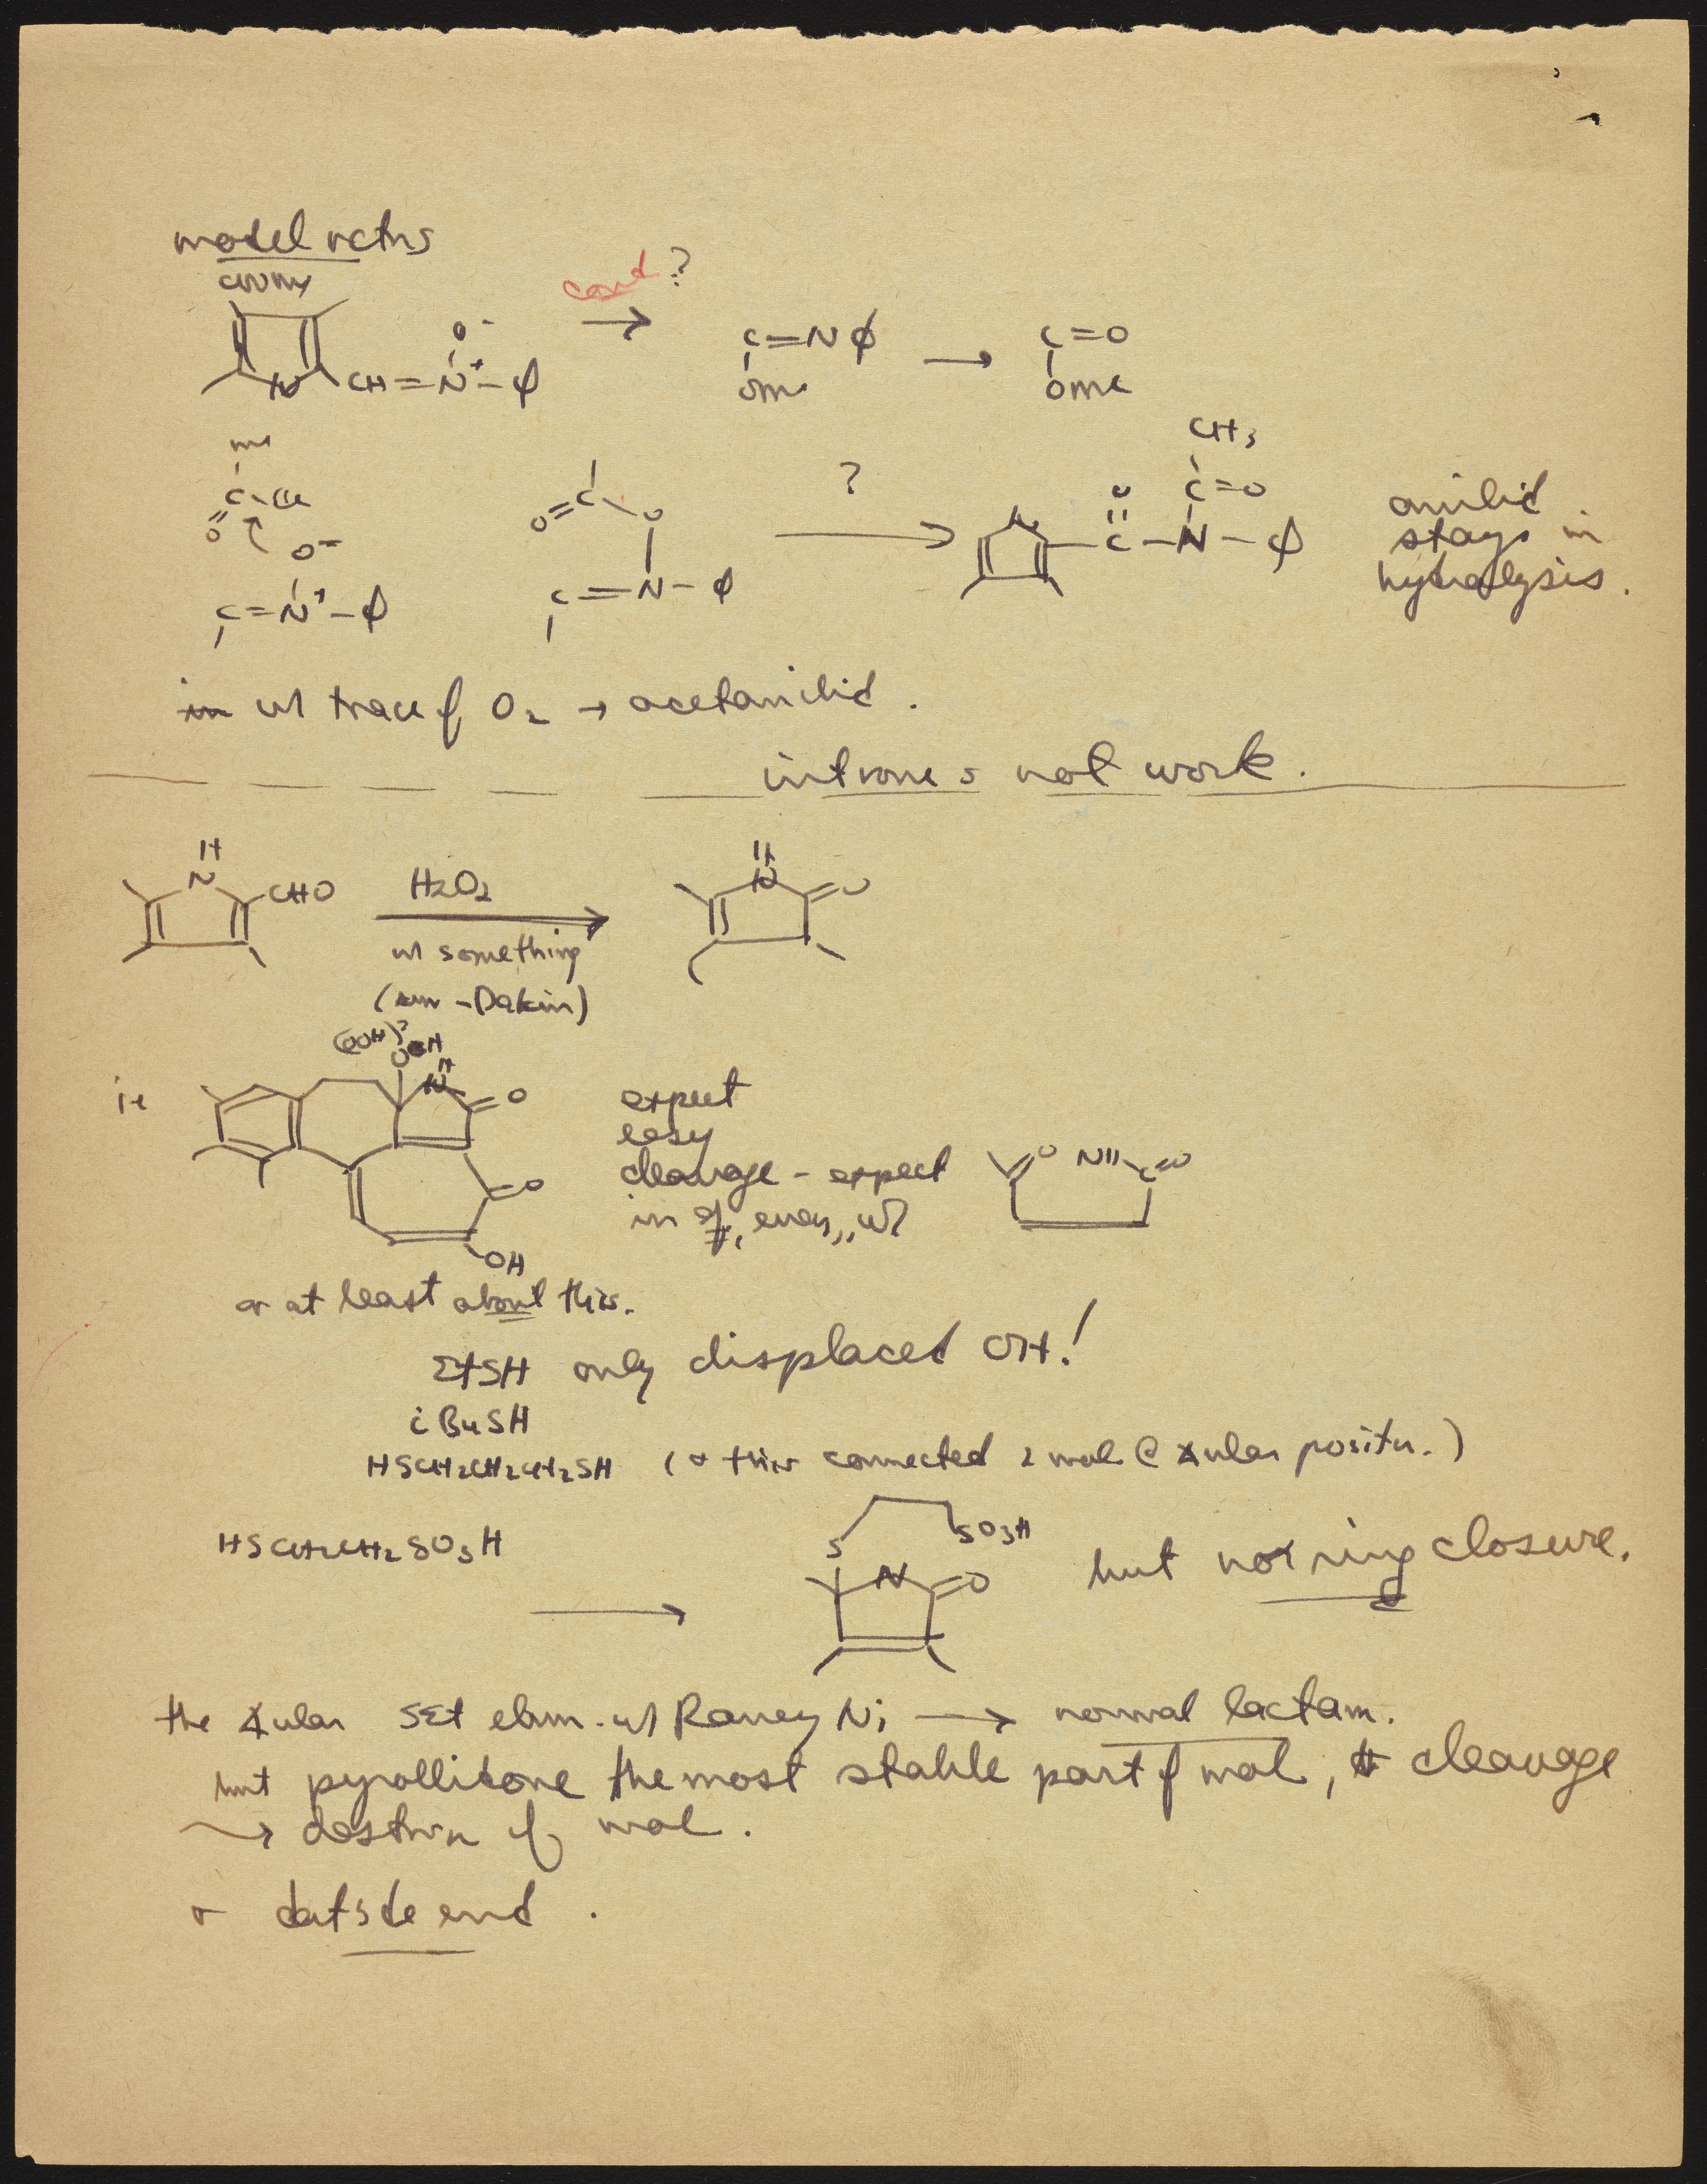 model rctns
cond ?
CH=N⁺-φ
O⁻
C=Nφ → C=O
OMe
CH₃
C-N-φ
C=O
anilid
stays in
hydrolysis.
?
O=C O
C=N-φ
C=N⁺-φ
O⁻
w/ trace of O₂ → acetanilid.
nitrones not work.
H
N
CHO
H₂O₂
w/ something
-Dakin)
H
N
O
(OOH)?
OH
N H
O
ie
O
OH
expect
easy
cleavage - expect
in
O NH C=O
or at least about this.
EtSH only displaced OH!
iBuSH
HSCH₂CH₂CH₂SH (& this connected 2 mol @ ∡ular positn.)
HSCH₂CH₂SO₃H
S SO₃H
N O
but not ring closure.
the ∡ular SEt elim. w/ Raney Ni → normal lactam.
but pyrollidone the most stable part of mol, & cleavage
→ destrn of mol.